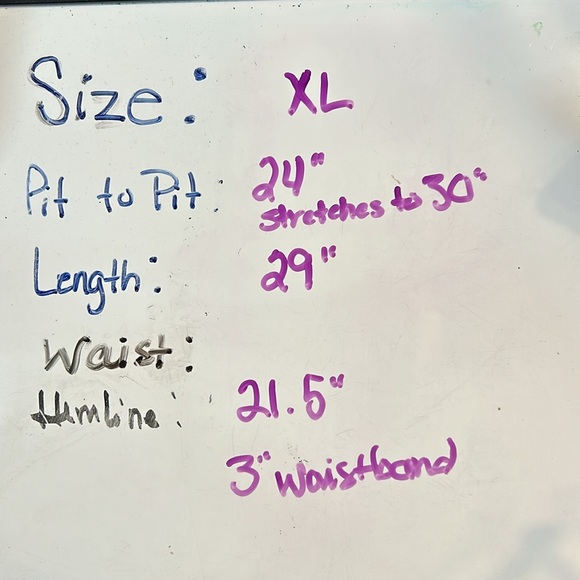 Size: XL
Pit to Pit: 24"
stretches to 30"
Length: 29"
Waist:
Hemline: 21.5"
3" Waistband